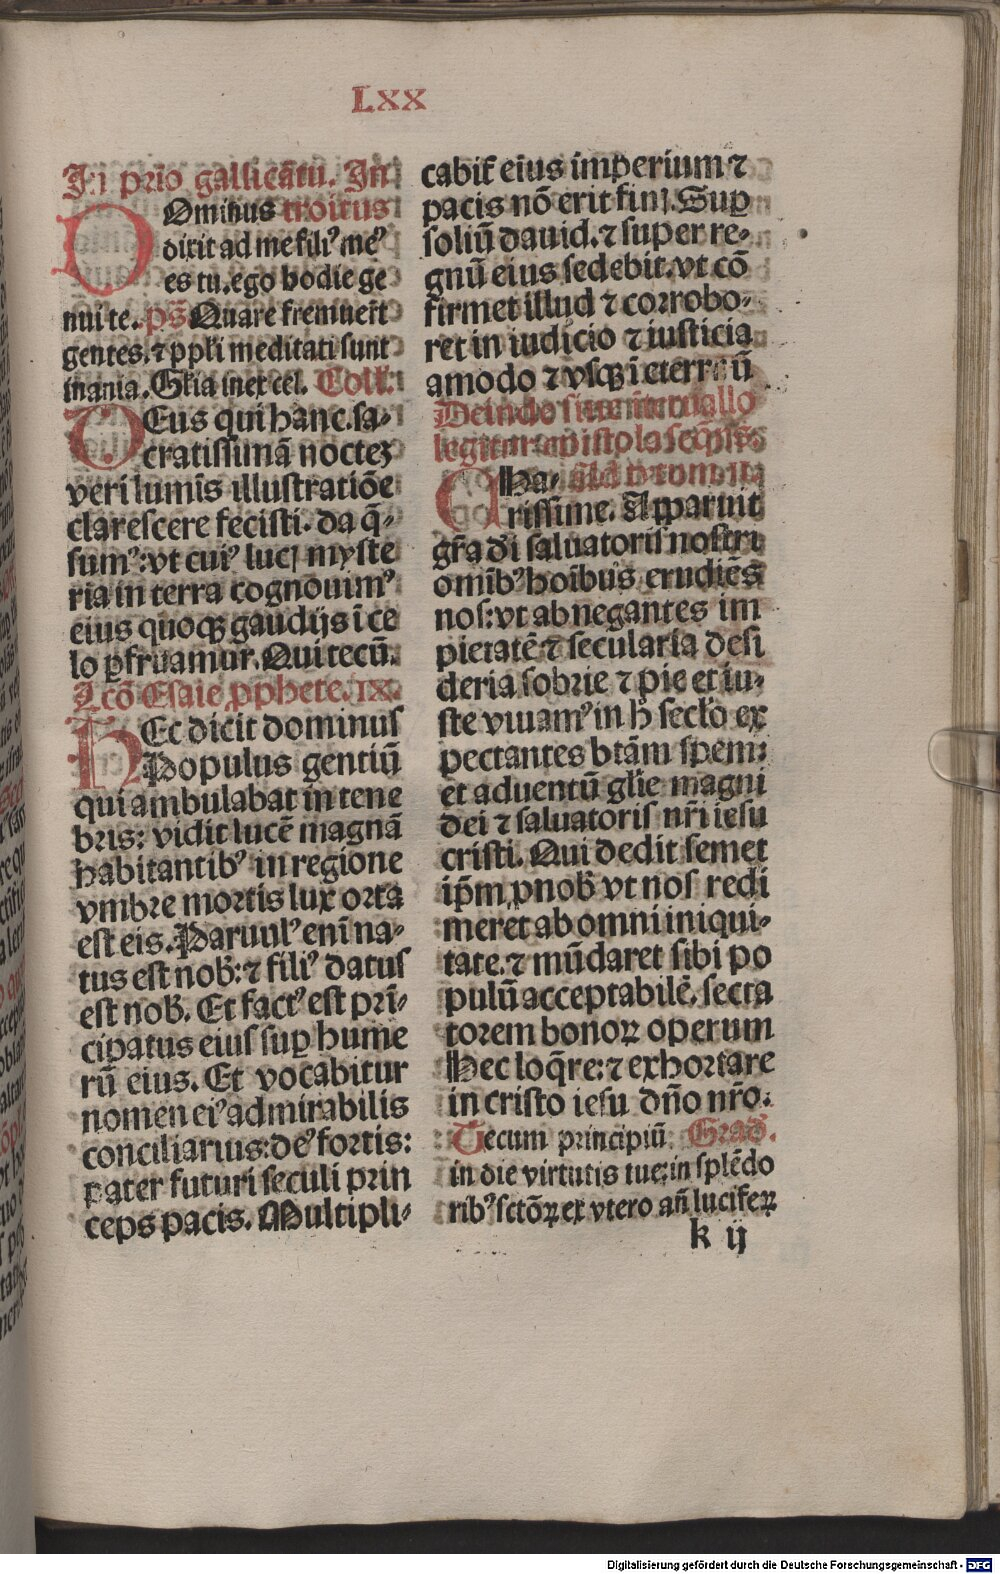 LXX
In prīo gallicātu. In
DOminus troitus
dixit ad me filiꝰ meꝰ
es tu. ego hodie ge
nui te. ps̄ Quare fremuer̄t
gentes. ⁊ ppl̄i meditati sunt
inania. Gl̄ia in excel. Coll̄.
DEus qui hanc sa⸗
cratissimā noctez
veri lumīs illustratiōe
clarescere fecisti. da q̄⸗
sumꝰ: vt cuiꝰ lucꝭ myste
ria in terra cognouimꝰ
eius quoqꝫ gaudijs ī ce
lo ꝑfruamur. Qui tecū.
Lcō Esaie ꝓphete. IX.
HEc dicit dominus
Populus gentiū
qui ambulabat in tene
bris: vidit lucē magnā
habitantibꝰ in regione
vmbre mortis lux orta
est eis. Paruulꝰ enī na⸗
tus est nob̄: ⁊ filiꝰ datus
est nob̄. Et factꝰ est prī⸗
cipatus eius suꝑ hume
rū eius. Et vocabitur
nomen eiꝰ admirabilis
conciliarius: deꝰ fortis:
pater futuri seculi prin
ceps pacis. Multipli⸗
cabit̄ eius imperium ⁊
pacis nō erit finꝭ. Suꝑ
soliū dauid. ⁊ super re⸗
gnū eius sedebit. vt cō
firmet illud ⁊ corrobo⸗
ret in iudicio ⁊ iusticia
amodo ⁊ vsqꝫ ī eternū
Deinde sine interuallo
legitur epistola seq̄ns.
CHa⸗ Ad Titum. II.
rissime. Apparuit
gr̄a dī saluatoris nostri
omībꝰ hoībus erudiēs
nos: vt abnegantes im
pietatē ⁊ secularia desi
deria sobrie ⁊ pie et iu⸗
ste viuamꝰ in h̄ sec̄lo ex
pectantes btām spem:
et aduentū gl̄ie magni
dei ⁊ saluatoris nr̄i iesu
cristi. Qui dedit semet
ip̄m ꝓ nob̄ vt nos redi
meret ab omni iniqui⸗
tate. ⁊ mūdaret sibi po
pulū acceptabilē. secta
torem bonoꝝ operum
Hec loq̄re: ⁊ exhortare
in cristo iesu dn̄o nr̄o.
Tecum principiū Grad̄.
in die virtutis tue: in splēdo
ribꝰ sctōꝝ ex vtero an̄ luciferꝝ
k ij
Digitalisierung gefördert durch die Deutsche Forschungsgemeinschaft - DFG